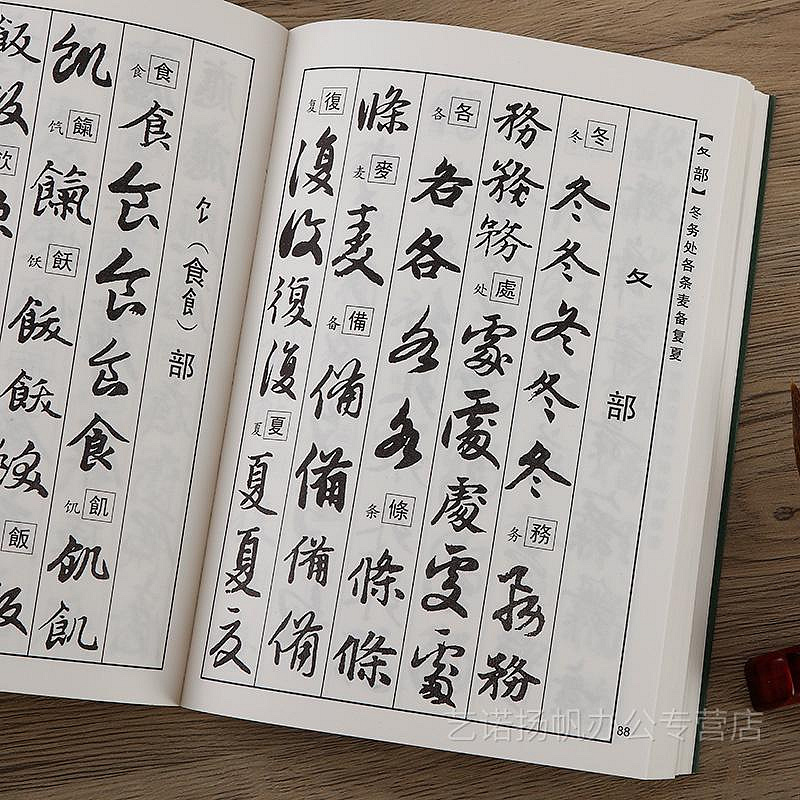 【夂部】冬务处各条麦备复夏
夂部
冬冬冬冬冬冬冬务務務務
務務務处處處處處處處
各各各各各各条條條條
條麦麥麦备備備備備備
复復復復復復夏夏夏夏夏
88
饣（食飠）部
食食食食食食食饥飢飢飢
飢饩餼餼饫飫飫飫飫飯飯
飯飯
艺诺扬帆办公专营店